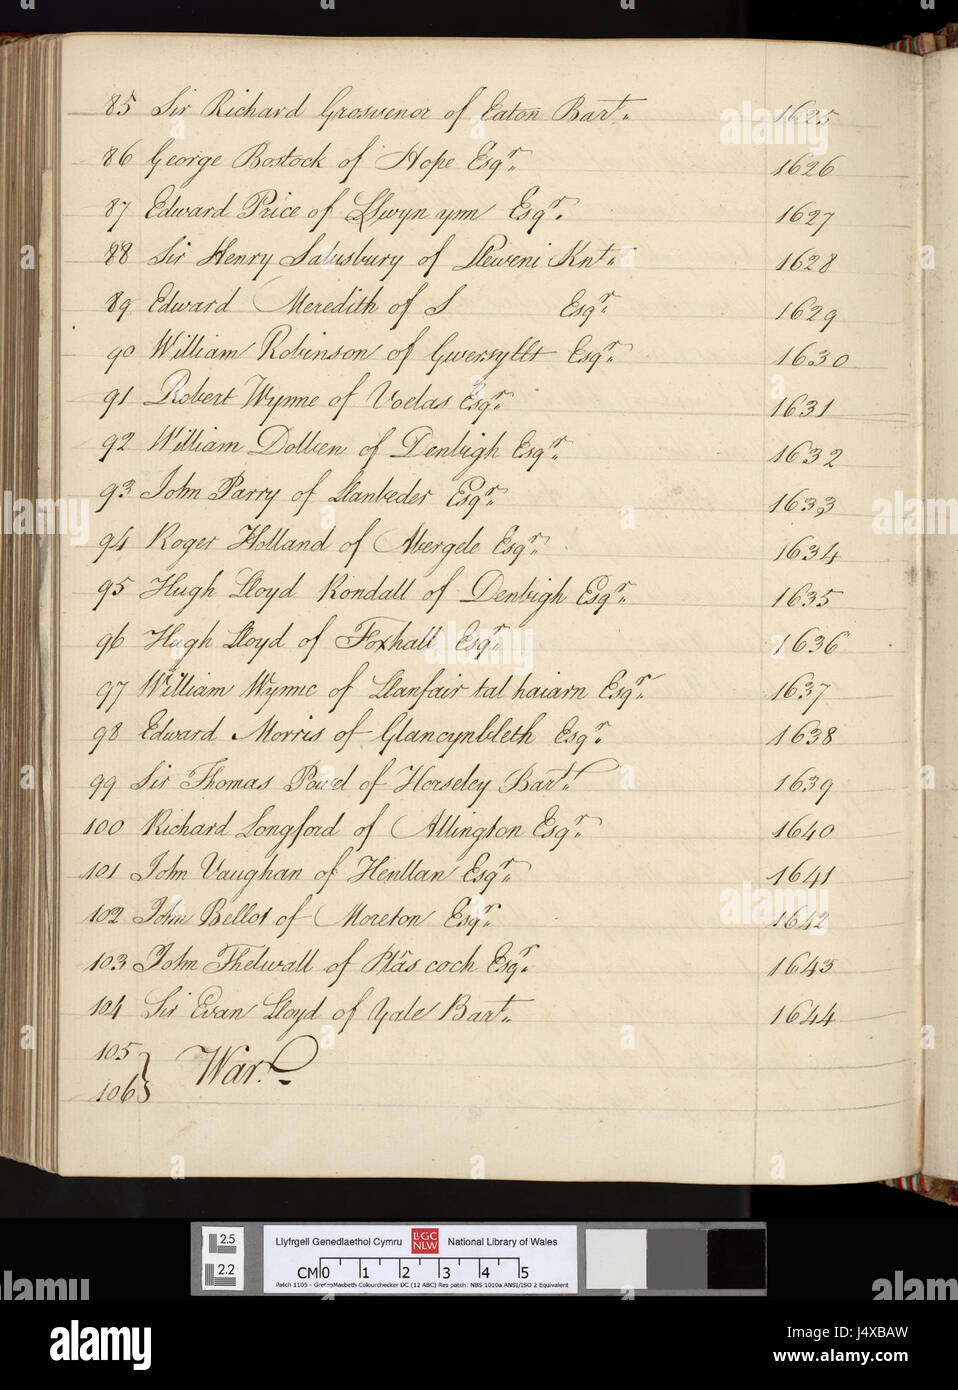 85 Sir Richard Grosvenor of Eaton Bart. 1625
86 George Bostock of Hope Esqr. 1626
87 Edward Price of Llwyn ynn Esqr. 1627
88 Sir Henry Salusbury of Lleweni Knt. 1628
89 Edward Meredith of S Esqr. 1629
90 William Robinson of Gwersyllt Esqr. 1630
91 Robert Wynne of Voelas Esqr. 1631
92 William Dolben of Denbigh Esqr. 1632
93 John Parry of Llanbeder Esqr. 1633
94 Roger Holland of Abergele Esqr. 1634
95 Hugh Lloyd Rondall of Denbigh Esqr. 1635
96 Hugh Lloyd of Foxhall Esqr. 1636
97 William Wynne of Llanfair tal haiarn Esqr. 1637
98 Edward Morris of Glancynlleth Esqr. 1638
99 Sir Thomas Powel of Horseley Bart. 1639
100 Richard Longford of Allington Esqr. 1640
101 John Vaughan of Henllan Esqr. 1641
102 John Bellot of Moreton Esqr. 1642
103 John Thelwall of Plâs coch Esqr. 1643
104 Sir Evan Lloyd of Yale Bart. 1644
105
106 } War.
2.5
2.2
Llyfrgell Genedlaethol Cymru LLGC NLW National Library of Wales
CM 0 1 2 3 4 5
Patch 1105 - GretagMacbeth Colourchecker DC (12 ABC) Res patch: NBS 1010a ANSI/ISO 2 Equivalent
alamy
Image ID: J4XBAW
www.alamy.com